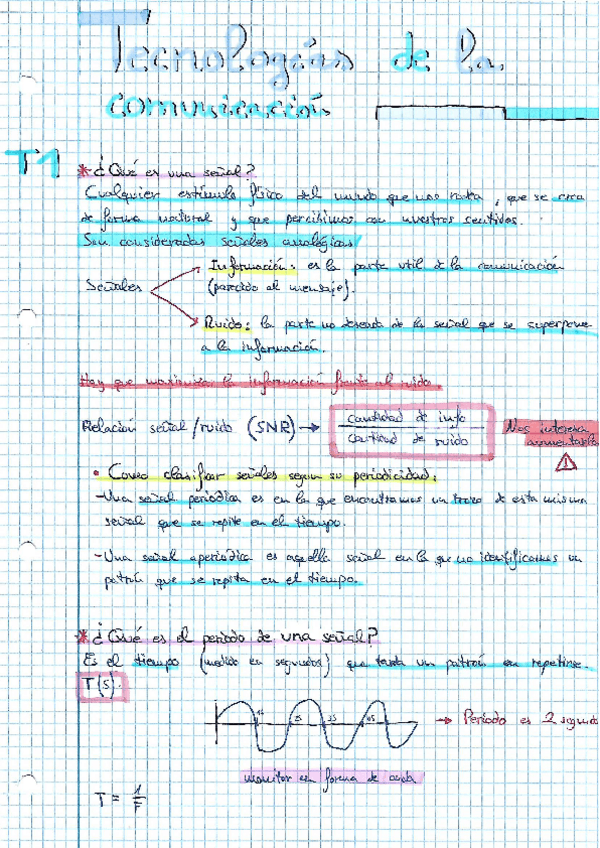 Tecnologías de la
comunicación
T1
* ¿Qué es una señal?
Cualquier estímulo físico del mundo que nos rodea, que se crea
de forma natural y que percibimos con nuestros sentidos.
Son consideradas señales analógicas
Información: es la parte util de la comunicación
Señales
(parecido al mensaje).
Ruido: la parte no deseada de la señal que se superpone
a la información.
Hay que maximizar la información frente al ruido
Relación señal/ruido (SNR) → cantidad de info
cantidad de ruido
Nos interesa
aumentarla
• Como clasificar señales según su periodicidad:
-Una señal periódica es en la que encontramos un trozo de esta misma
señal que se repite en el tiempo.
-Una señal aperiódica es aquella señal en la que no identificamos un
patrón que se repita en el tiempo.
* ¿Qué es el periodo de una señal?
Es el tiempo (medido en segundos) que tarda un patrón en repetirse.
T(s).
1s 2s 3s 4s → Periodo es 2 segund
monitor en forma de onda
T = 1/F